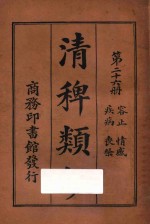 第二十六册
容止 情感
疾病 喪祭
清稗類
商務印書館發行